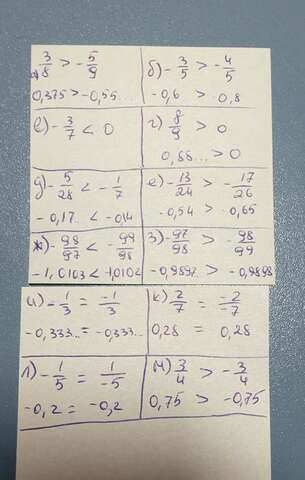 а) 3/8 > -5/9 б) -3/5 > -4/5
0,375 > -0,55... -0,6 > -0,8
в) -3/7 < 0 г) 8/9 > 0
0,88... > 0
д) -5/28 < -1/7 е) -13/24 > -17/26
-0,17 < -0,14 -0,54 > -0,65
ж) -98/97 < -99/98 з) -97/98 > -98/99
-1,0103 < -1,0102 -0,9897 > -0,9898
и) -1/3 = -1/3 к) 2/7 = -2/-7
-0,333.. = -0,333... 0,28 = 0,28
л) -1/5 = 1/-5 м) 3/4 > -3/4
-0,2 = -0,2 0,75 > -0,75